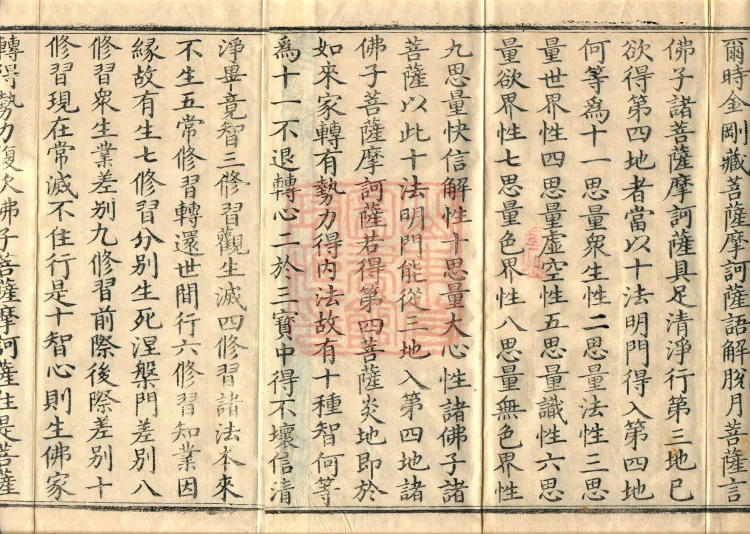 爾時金剛藏菩薩摩訶薩語解脫月菩薩言
佛子諸菩薩摩訶薩具足清淨行第三地已
欲得第四地者當以十法明門得入第四地
何等爲十一思量衆生性二思量法性三思
量世界性四思量虛空性五思量識性六思
量欲界性七思量色界性八思量無色界性
九思量快信解性十思量大心性諸佛子諸
菩薩以此十法明門能從三地入第四地諸
佛子菩薩摩訶薩若得第四菩薩炎地即於
如來家轉有勢力得内法故有十種智何等
爲十一不退轉心二於三寶中得不壞信清
淨畢竟智三修習觀生滅四修習諸法本來
不生五常修習轉還世間行六修習知業因
緣故有生七修習分別生死涅槃門差別八
修習衆生業差別九修習前際後際差別十
修習現在常滅不住行是十智心則生佛家
轉得勢力復次佛子菩薩摩訶薩住是菩薩